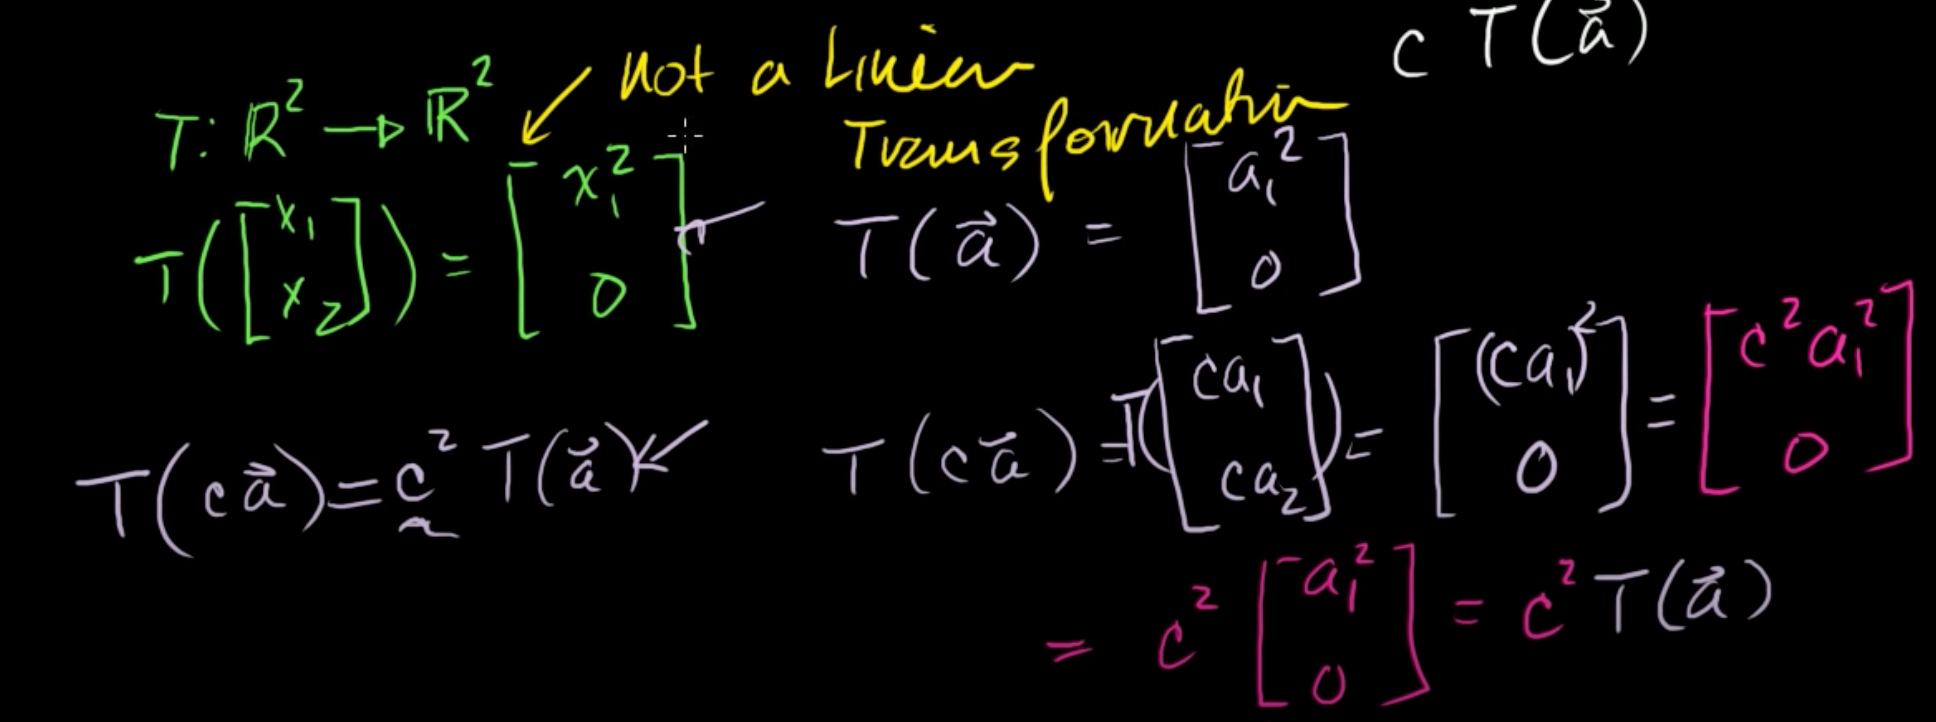 c T(a⃗)
not a Linear
Transformation
T: ℝ² → ℝ²
T([x₁ x₂]) = [x₁² 0]
T(a⃗) = [a₁² 0]
T(ca⃗) = c² T(a⃗)
T(ca⃗) = T([ca₁ ca₂]) = [(ca₁)² 0] = [c²a₁² 0]
= c² [a₁² 0] = c² T(a⃗)